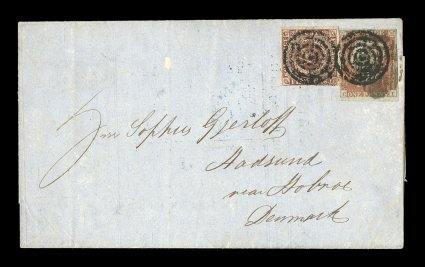 Sophus Gjerloff
Hadsund
near Hobroe
Denmark